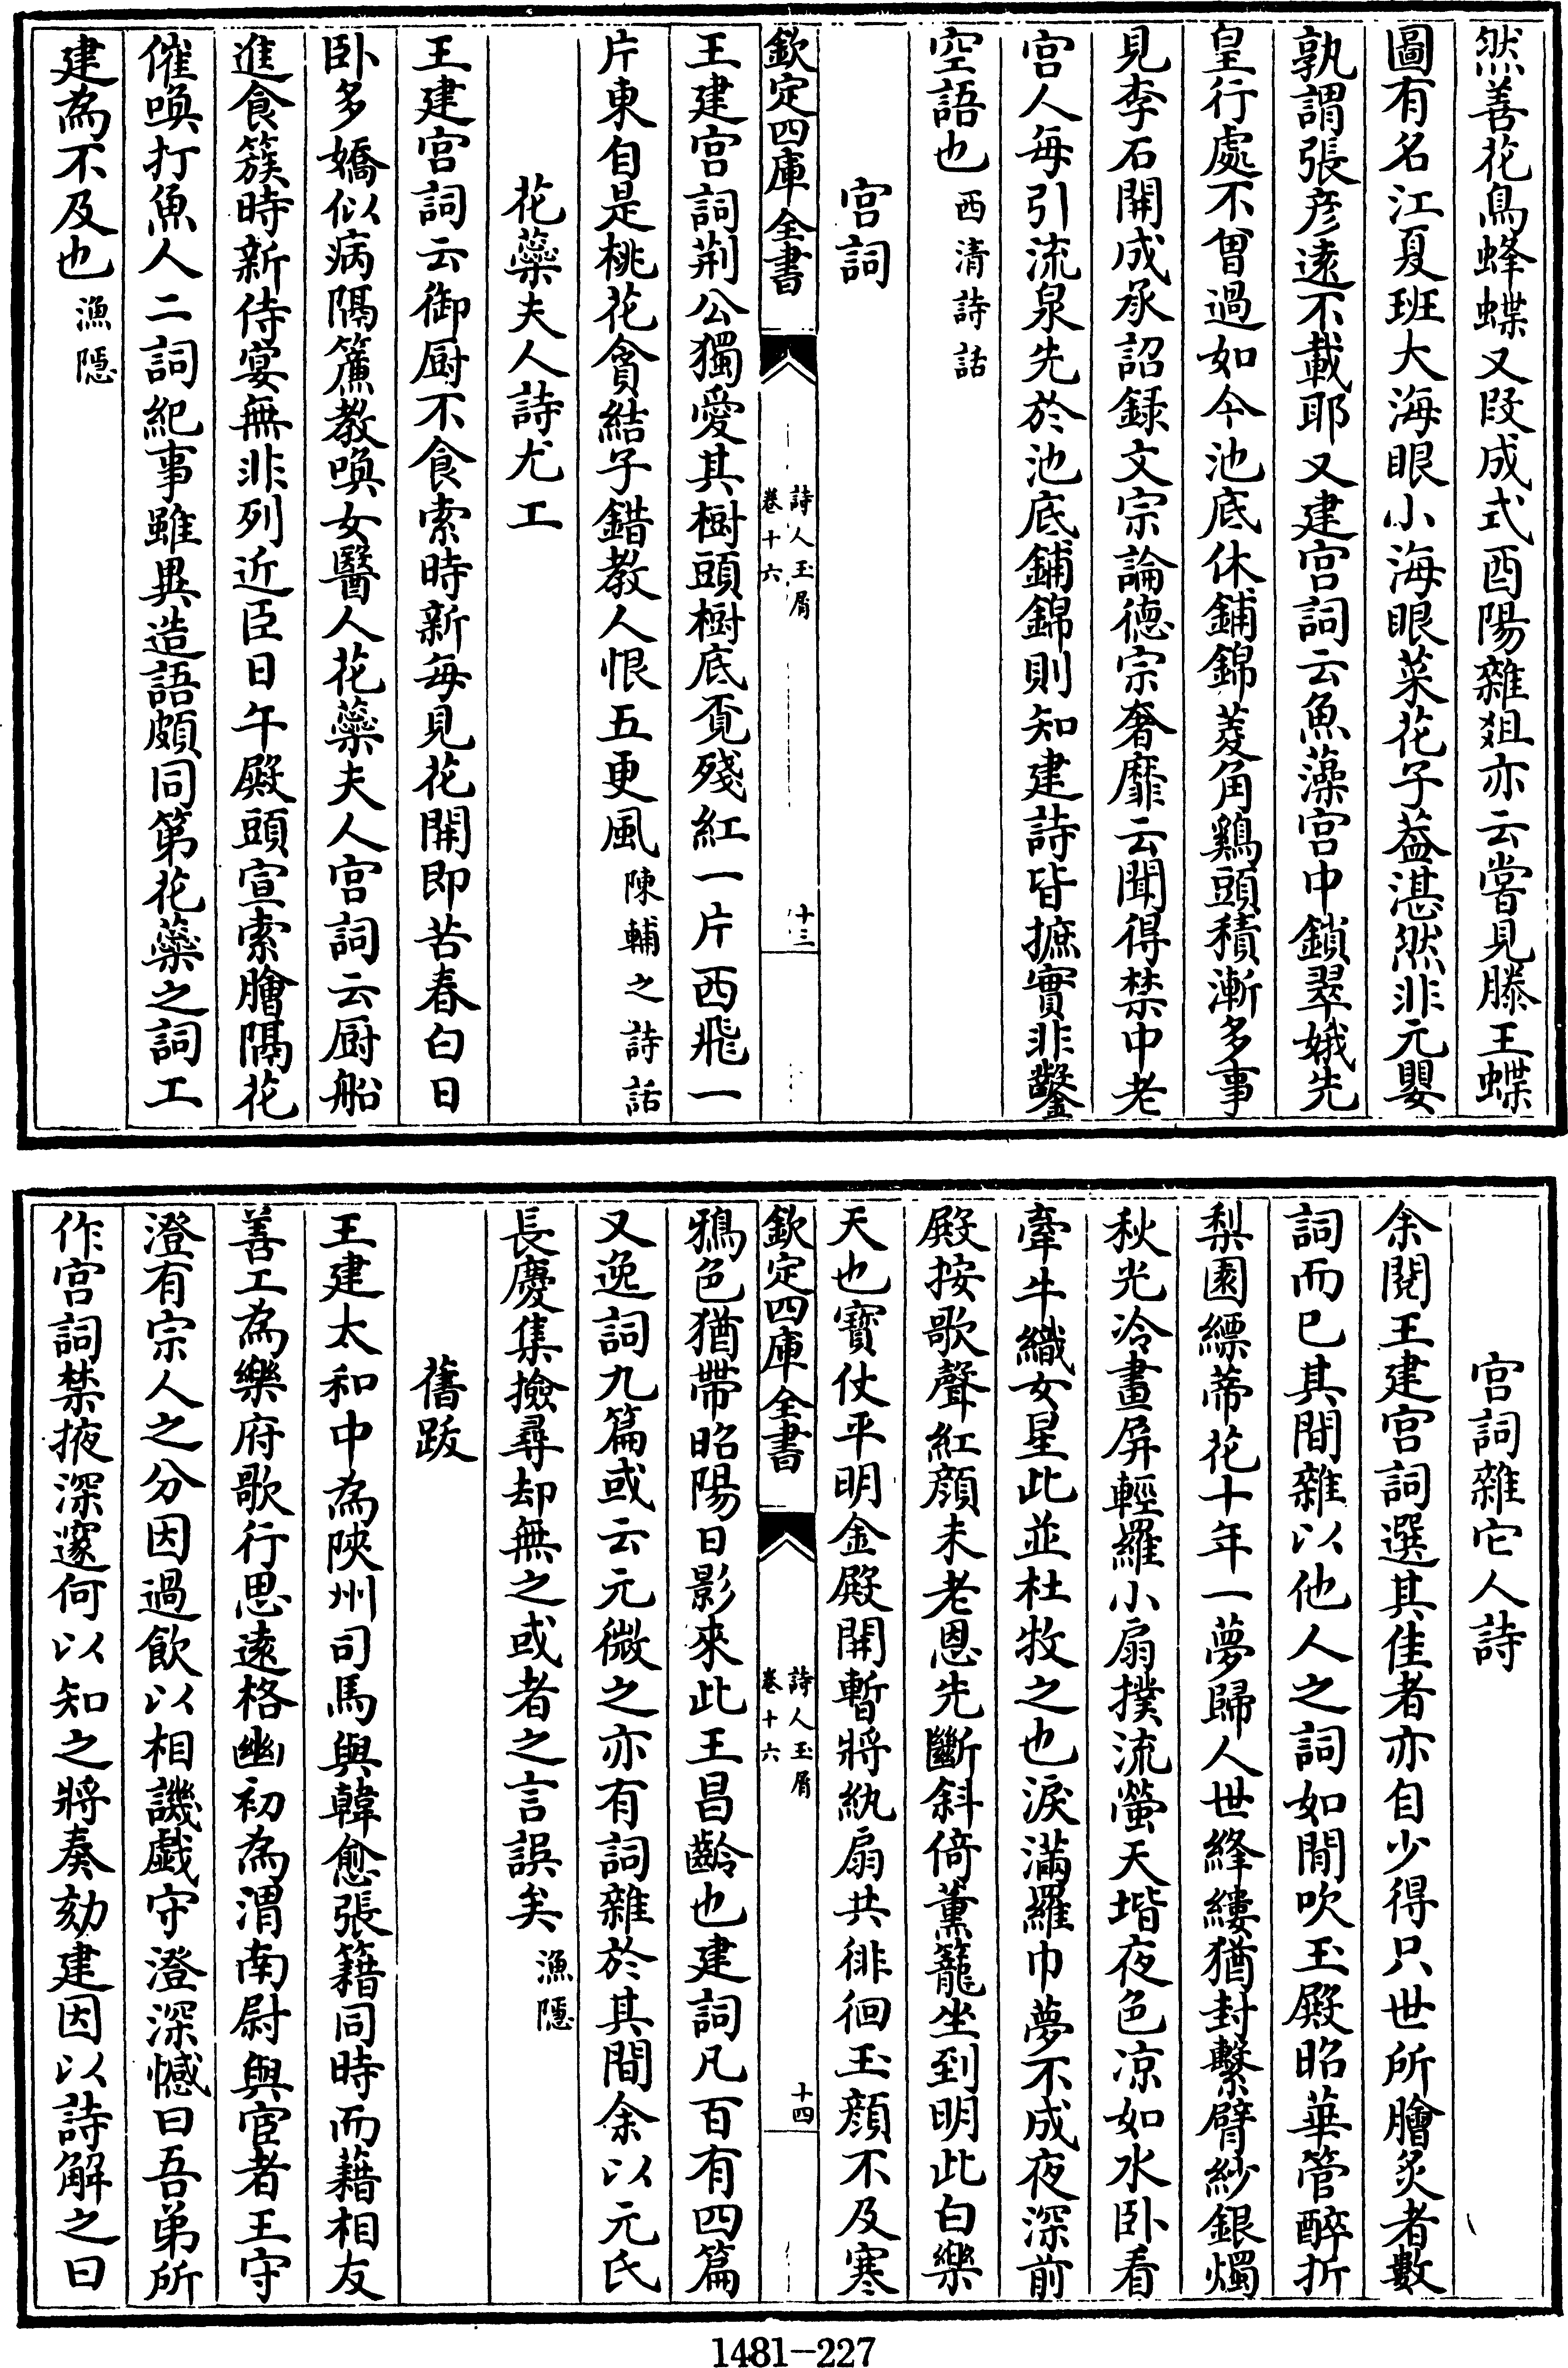 然善花鳥蜂蝶又段成式酉陽雜俎亦云嘗見滕王蝶
圖有名江夏班大海眼小海眼菜花子葢湛然非元嬰
孰謂張彦逺不載耶又建宫詞云魚藻宫中鎖翠娥先
皇行處不曾過如今池底休鋪錦菱角鷄頭積漸多事
見李石開成承詔録文宗論徳宗奢靡云聞得禁中老
宫人每引流泉先於池底鋪錦則知建詩皆摭實非鑿
空語也西清詩話
宫詞
欽定四庫全書
詩人玉屑
卷十六
十三
王建宫詞荆公獨愛其樹頭樹底覔殘紅一片西飛一
片東自是桃花貪結子錯教人恨五更風陳輔之詩話
花蘂夫人詩尤工
王建宫詞云御厨不食索時新每見花開即苦春白日
卧多嬌似病隔簾教喚女醫人花蘂夫人宫詞云厨船
進食簇時新侍宴無非列近臣日午殿頭宣索膾隔花
催喚打魚人二詞紀事雖異造語頗同第花蘂之詞工
建為不及也漁隱
宫詞雜它人詩
余閱王建宫詞選其佳者亦自少得只世所膾炙者數
詞而已其間雜以他人之詞如閒吹玉殿昭華管醉折
梨園縹蒂花十年一夢歸人世絳縷猶封繫臂紗銀燭
秋光冷畫屏輕羅小扇撲流螢天堦夜色凉如水卧看
牽牛織女星此並杜牧之也淚滿羅巾夢不成夜深前
殿按歌聲紅顔未老恩先斷斜倚薫籠坐到明此白樂
天也寳仗平明金殿開暫將紈扇共徘徊玉顔不及寒
欽定四庫全書
詩人玉屑
卷十六
十四
鴉色猶帶昭陽日影來此王昌齡也建詞凡百有四篇
又逸詞九篇或云元微之亦有詞雜於其間余以元氏
長慶集撿尋却無之或者之言誤矣漁隱
舊跋
王建太和中為陜州司馬與韓愈張籍同時而藉相友
善工為樂府歌行思逺格幽初為渭南尉與宦者王守
澄有宗人之分因過飲以相譏戯守澄深憾曰吾弟所
作宫詞禁掖深邃何以知之將奏劾建因以詩解之曰
1481-227